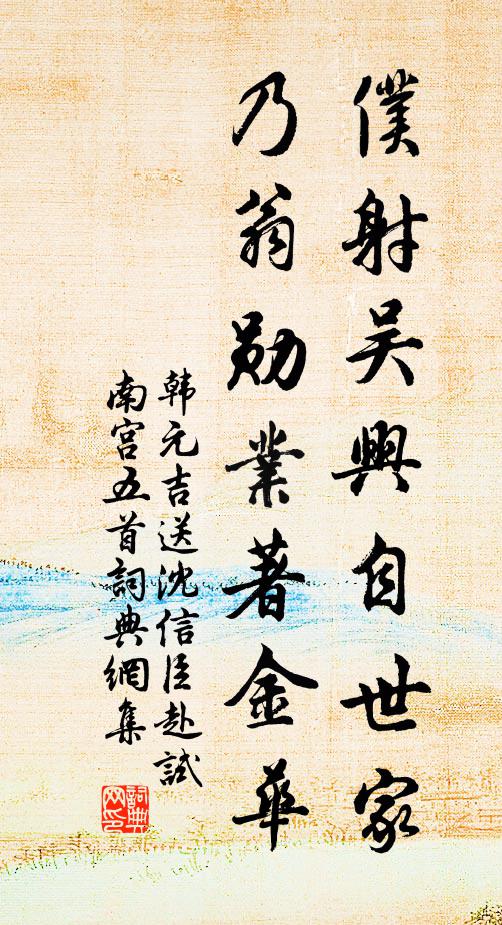 僕射吳興自世家
乃翁勛業著金華
韩元吉送沈信臣赴試
南宮五首詞典網集
詞典网印